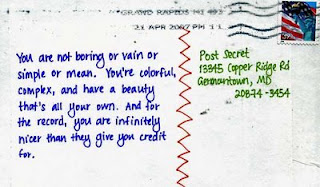 GRAND RAPIDS MI 493
21 APR 2007 PM 1 1
You are not boring or vain or
simple or mean. You're colorful,
complex, and have a beauty
that's all your own. And for
the record, you are infinitely
nicer than they give you credit
for.
Post Secret
13345 Copper Ridge Rd
Germantown, MD
20874-3454